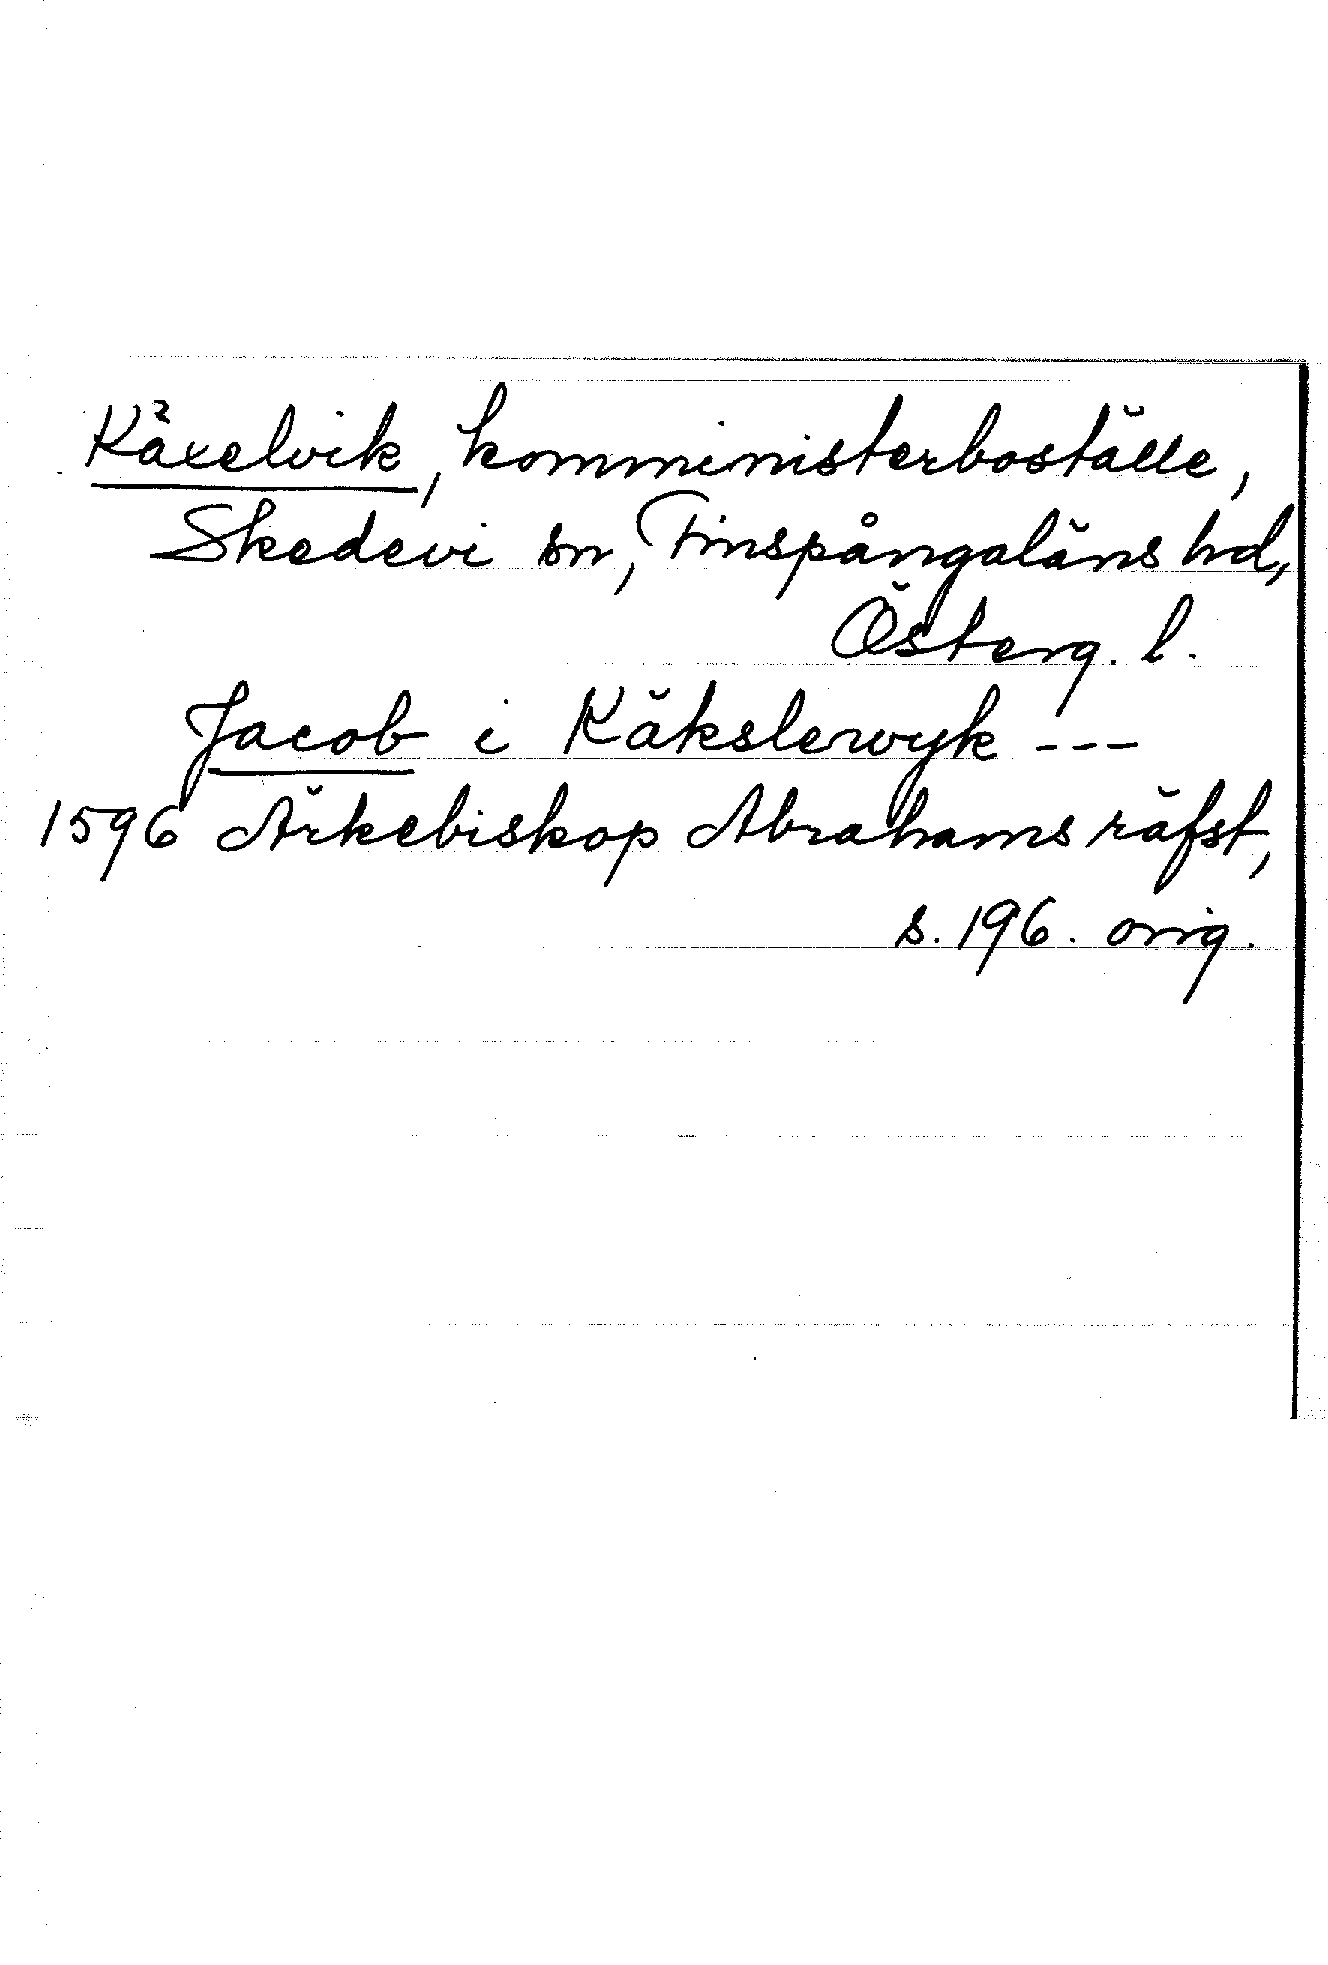 Käxelvik, komministerboställe,
Skedevi sn, Finspångaläns hd,
Österg. l.
Jacob i Käkslerwyk ---
1596 Ärkebiskop Abrahams räfst,
s. 196. orig.